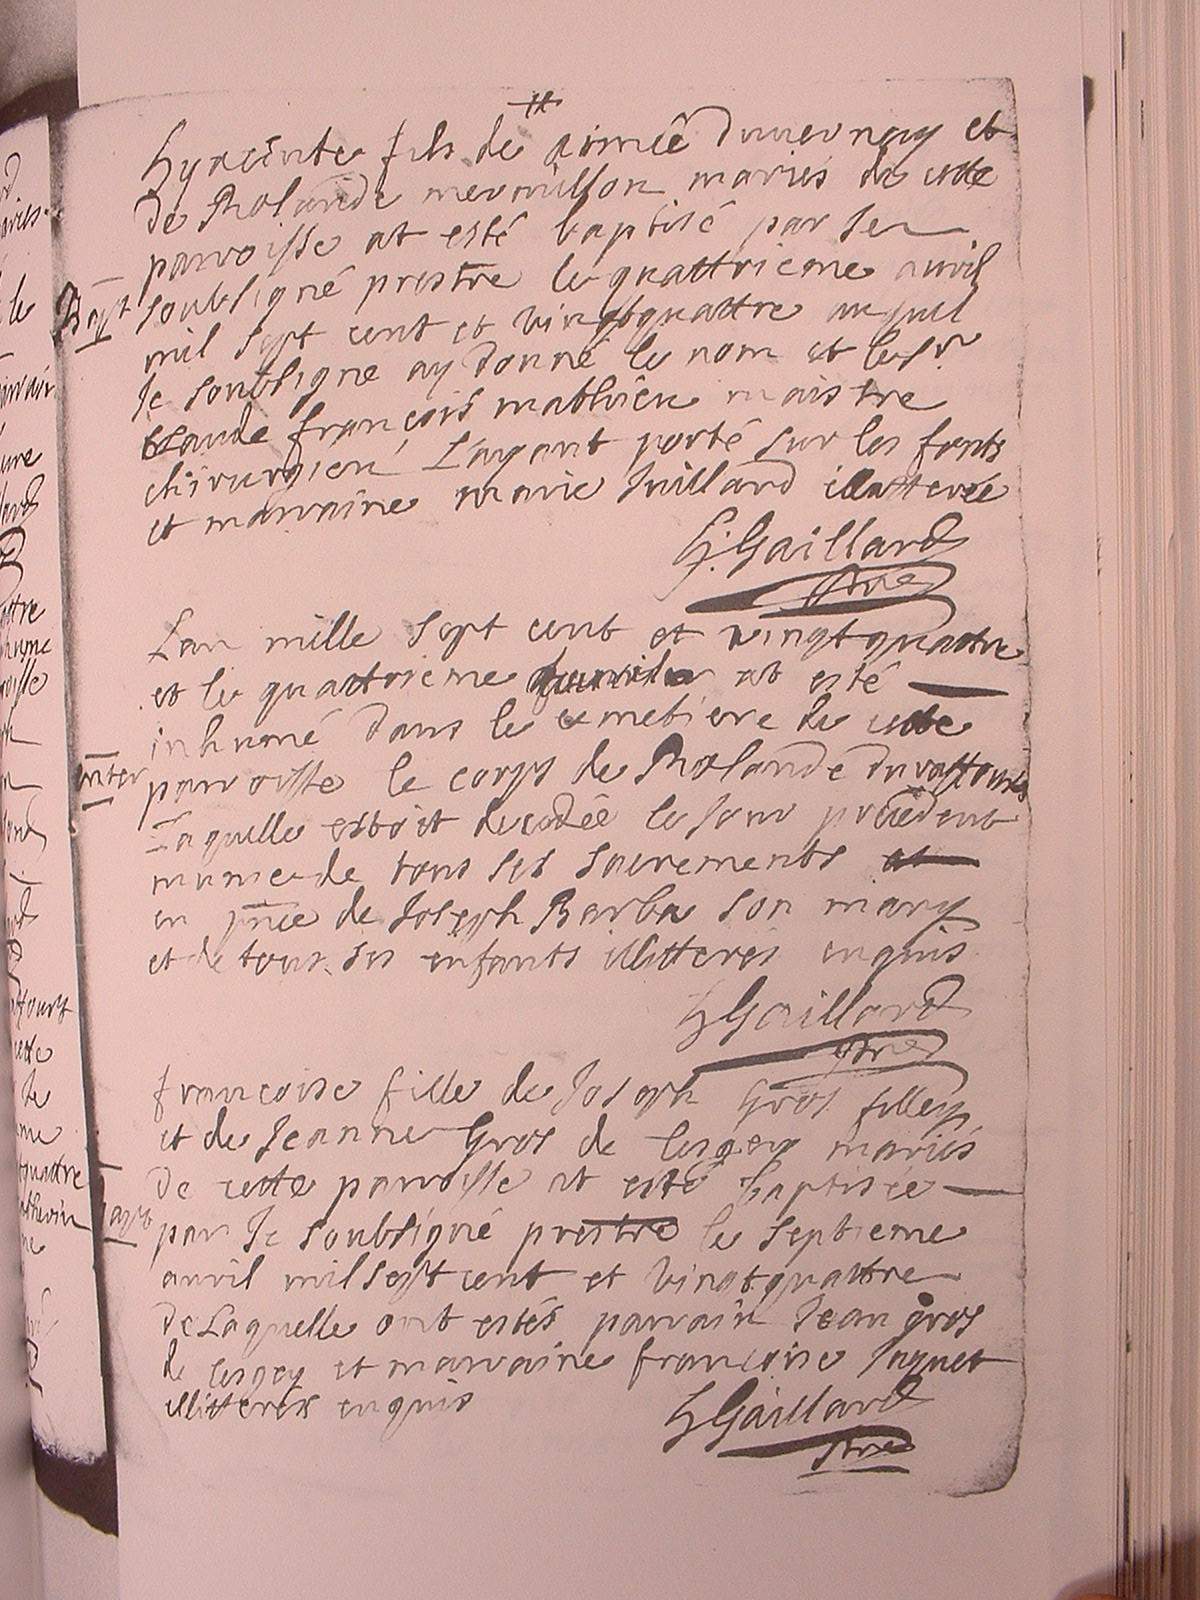 hyacinte fils de aimée duvernay et
de Rolande mermillon mariés de cette
parroisse at esté baptisé par Je
Bapt
soubsigné prestre le quattrieme auvril
mil sept cent et vingtquattre auquel
Je soubsigné ay donné le nom et le Sr
Claude françois mathieu maistre
chirurgien Layant porté sur les fonts
et marraine marie Juillard illitterée
h. Gaillard
ptre
Lan mille sept cent et vingtquattre
et le quattrieme at esté
inhumé dans le cemetiere de cette
enter
parroisse le corps de Rolande
Laquelle estoit decedée le Jour précédent
munie de tous ses sacrements et
en pnce de Joseph Barba son mary
et de tous ses enfants illitterés enquis
h Gaillard
ptre
françoise fille de Joseph Gros filley
et de Jeanne Gros de lesgey mariés
de cette parroisse at esté baptisée
bapt
par Je soubsigné prestre le septieme
auvril mil sept cent et vingtquattre
de Laquelle ont estés parrain Jean gros
de lesgey et marraine françoise Juquet
illitterés enquis
h Gaillard
ptre